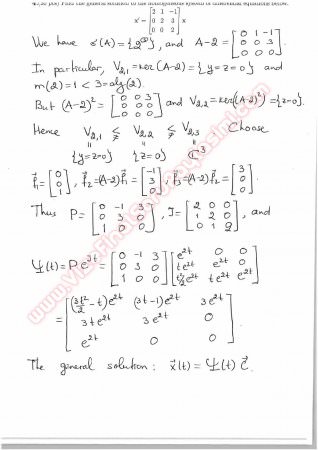 Find the general solution to the homogeneous system of differential equations below.
x' = [2 1 -1; 0 2 3; 0 0 2] x
We have σ(A) = {2^(3)}, and A-2 = [0 1 -1; 0 0 3; 0 0 0].
In particular, V_{2,1} = ker(A-2) = {y=z=0} and
m(2)=1 < 3 = alg(2)
But (A-2)² = [0 0 3; 0 0 0; 0 0 0] and V_{2,2} = ker((A-2)²) = {z=0}.
Hence V_{2,1} ⊊ V_{2,2} ⊊ V_{2,3} Choose
{y=z=0} {z=0} ℂ³
P⃗₁ = [0; 0; 1], P⃗₂ = (A-2)P⃗₁ = [-1; 3; 0], P⃗₃ = (A-2)P⃗₂ = [3; 0; 0].
Thus P = [0 -1 3; 0 3 0; 1 0 0], J = [2 0 0; 1 2 0; 0 1 2], and
Ψ(t) = P e^{Jt} = [0 -1 3; 0 3 0; 1 0 0] [e^{2t} 0 0; te^{2t} e^{2t} 0; t²/2 e^{2t} te^{2t} e^{2t}]
= [(3t²/2 - t)e^{2t} (3t-1)e^{2t} 3e^{2t}; 3te^{2t} 3e^{2t} 0; e^{2t} 0 0]
The general solution: x⃗(t) = Ψ(t) C⃗.